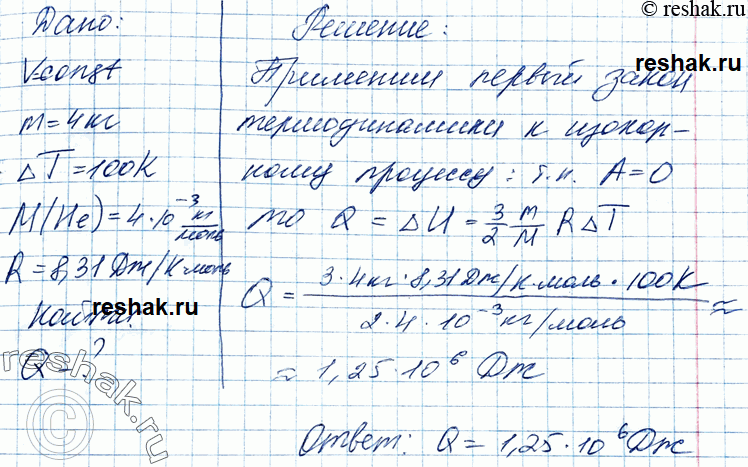 © reshak.ru
Дано:
V=const
m=4кг
ΔT=100K
M(He)=4·10⁻³ кг/моль
R=8,31 Дж/К·моль
Найти:
Q=?
Решение:
Применим первый закон
термодинамики к изохор-
ному процессу: т.к. A=0
то Q = ΔU = 3/2 m/M RΔT
Q = 3·4кг·8,31Дж/К·моль·100К / 2·4·10⁻³кг/моль ≈
≈ 1,25·10⁶ Дж
Ответ: Q=1,25·10⁶Дж
reshak.ru
reshak.ru
reshak.ru
reshak.ru
reshak.ru